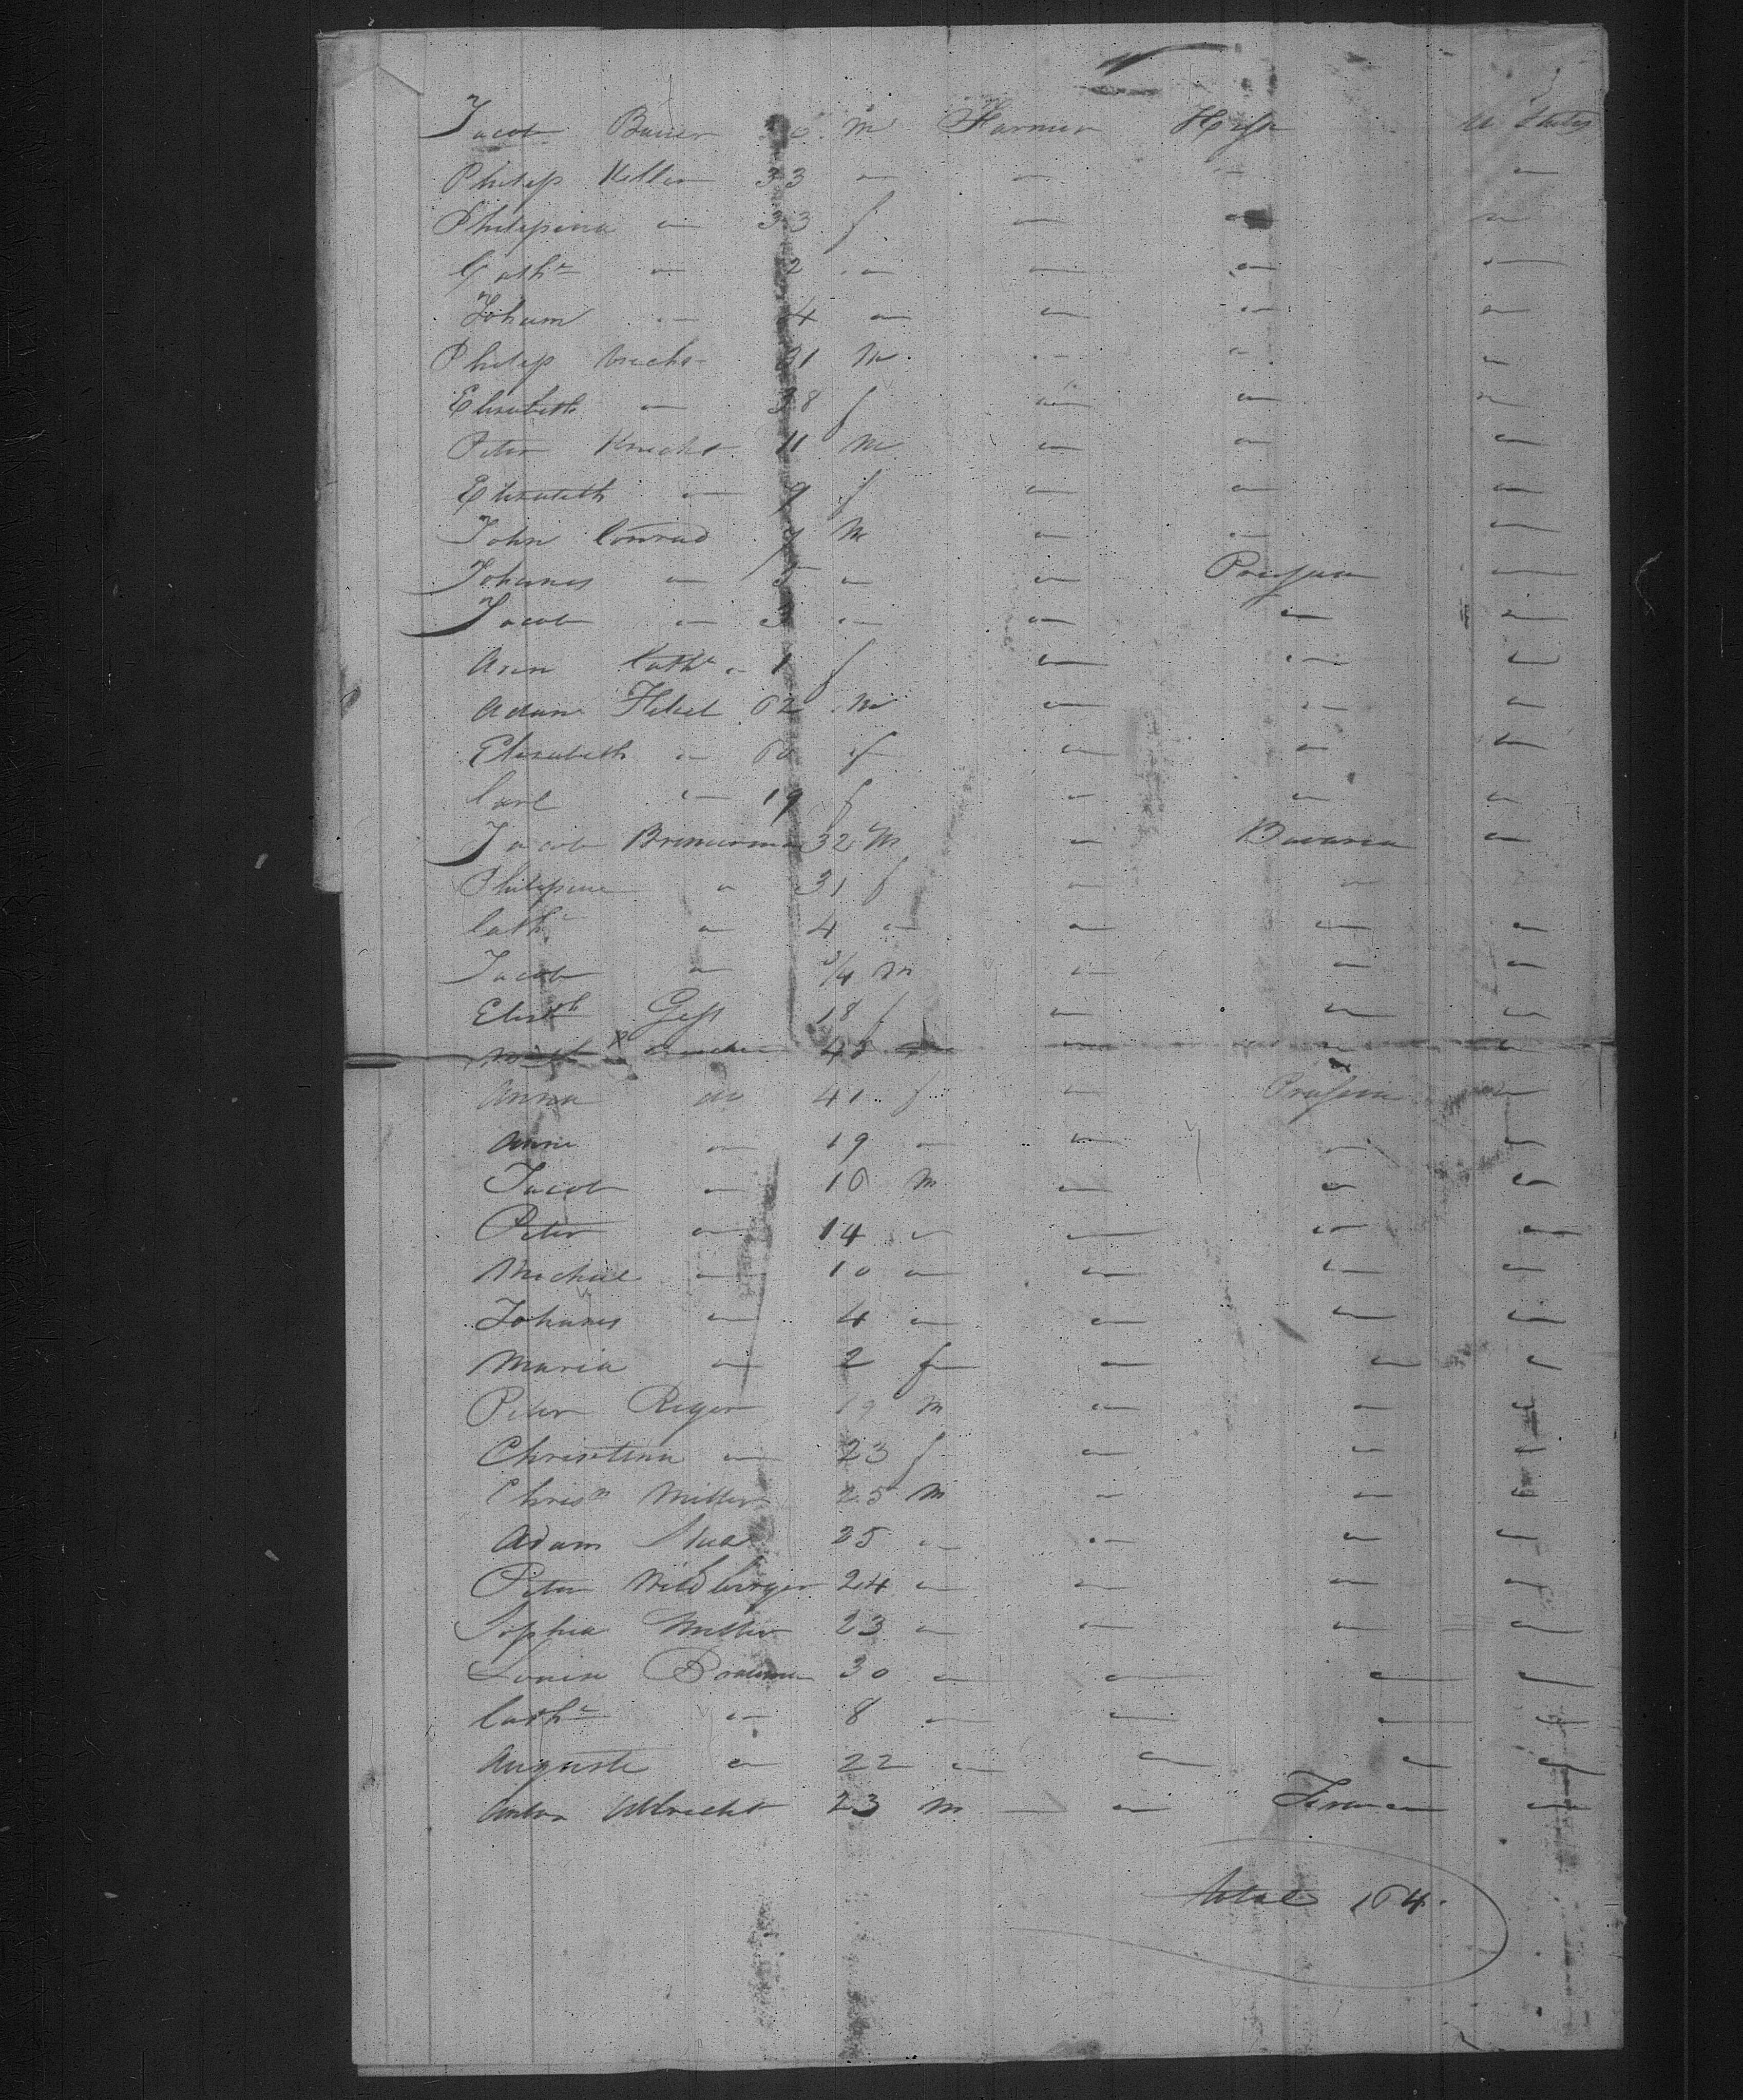 Jacob Bauer m Farmer Hessn U States
Philip Keller 33 " " " "
Philipina " 33 f " " "
Cathe " 2 " " " "
Johann " 4 " " " "
Philip Knecht 31 m " " "
Elisabeth " 38 f " " "
Peter Knecht 11 m " " "
Elisabeth " 9 f " " "
John Conrad 7 m " " "
Johanes " 5 " " Prussia "
Jacob " 3 " " " "
Ann Cathe " 1 f " " "
Adam Hekel 62 m " " "
Elisabeth " 60 f " " "
Carl " 19 f " " "
Jacob 32 m " Bavaria "
Philipine " 31 f " " "
Cathe " 4 " " " "
Jacob " 3/4 m " " "
Elisth Gess 18 f " " "
" " "
Anna do 41 f " Prussia "
Anne " 19 " " " "
Jacob " 16 m " " "
Peter " 14 " " " "
Michael " 10 " " " "
Johanes " 4 " " " "
Maria " 2 f " " "
Peter Reger 19 m " " "
Christina " 23 f " " "
Chrisn Miller 25 m " " "
Adam 25 " " " "
Peter Wildberger 24 " " " "
Sophia Miller 23 " " " "
Louisa 30 " " " "
Cathe " 8 " " " "
Auguste " 22 " " " "
Anton Albrecht 23 m " "
total 164.